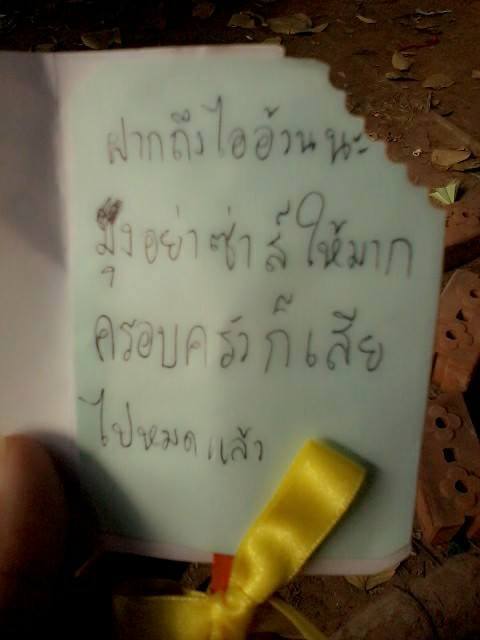 ฝากถึงไออ้วนนะ
มึงอย่าซ่าส์ให้มาก
ครอบครัวก็เสีย
ไปหมดแล้ว